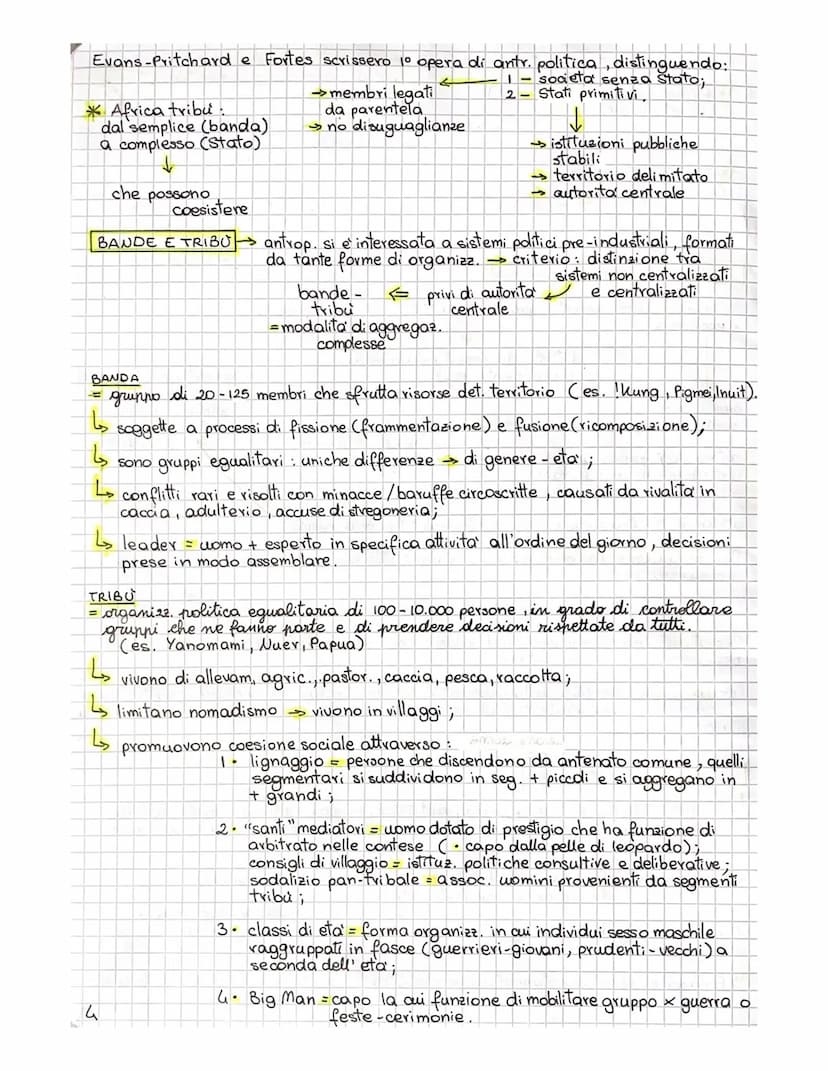 Evans-Pritchard e Fortes scrissero 1º opera di antr. politica, distinguendo:
1 - società senza Stato;
2 - Stati primitivi.
→ membri legati
da parentela
→ no disuguaglianze
* Africa tribù:
dal semplice (banda)
a complesso (Stato)
↓
che possono
coesistere
↓
→ istituzioni pubbliche
stabili
→ territorio delimitato
→ autorità centrale
BANDE E TRIBÙ → antrop. si è interessata a sistemi politici pre-industriali, formati
da tante forme di organizz. → criterio: distinzione tra
sistemi non centralizzati
e centralizzati
bande - ⇐ privi di autorità
tribù centrale
= modalità di aggregaz.
complesse
BANDA
= gruppo di 20-125 membri che sfrutta risorse det. territorio (es. !Kung, Pigmei, Inuit).
↳ soggette a processi di fissione (frammentazione) e fusione (ricomposizione);
↳ sono gruppi egualitari: uniche differenze → di genere - età;
↳ conflitti rari e risolti con minacce/baruffe circoscritte, causati da rivalità in
caccia, adulterio, accuse di stregoneria;
↳ leader = uomo + esperto in specifica attività all'ordine del giorno, decisioni
prese in modo assembleare.
TRIBÙ
= organizz. politica egualitaria di 100-10.000 persone, in grado di controllare
gruppi che ne fanno parte e di prendere decisioni rispettate da tutti.
(es. Yanomami, Nuer, Papua)
↳ vivono di allevam, agric., pastor., caccia, pesca, raccolta;
↳ limitano nomadismo → vivono in villaggi;
↳ promuovono coesione sociale attraverso:
1• lignaggio = persone che discendono da antenato comune, quelli
segmentari si suddividono in seg. + piccoli e si aggregano in
+ grandi;
2• "santi" mediatori = uomo dotato di prestigio che ha funzione di
arbitrato nelle contese (• capo dalla pelle di leopardo);
consigli di villaggio = istituz. politiche consultive e deliberative;
sodalizio pan-tribale = assoc. uomini provenienti da segmenti
tribù;
3• classi di età = forma organizz. in cui individui sesso maschile
raggruppati in fasce (guerrieri-giovani, prudenti-vecchi) a
seconda dell'età;
4• Big Man = capo la cui funzione di mobilitare gruppo x guerra o
feste-cerimonie.
4